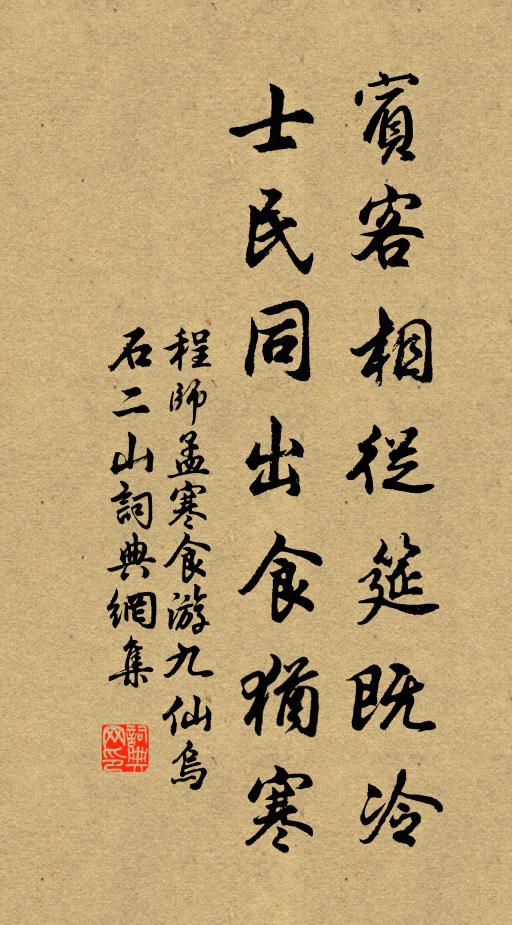 賓客相從筵既冷
士民同出食猶寒
程師孟寒食游九仙烏
石二山詞典網集
詞典網印